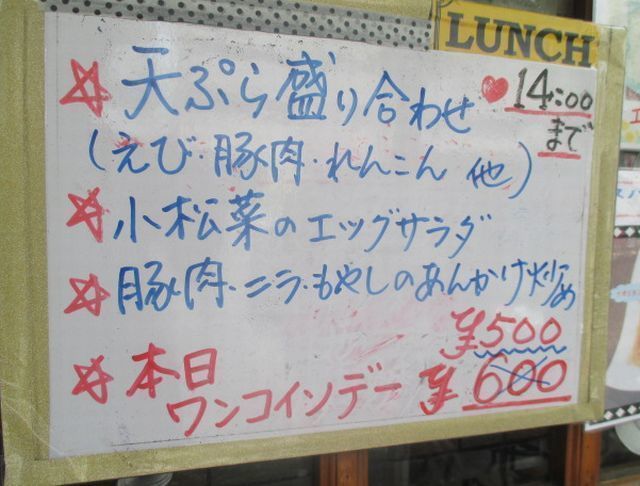 LUNCH
☆天ぷら盛り合わせ
♥14:00
まで
(えび・豚肉・れんこん 他)
☆小松菜のエッグサラダ
☆豚肉・ニラ・もやしのあんかけ炒め
¥500
☆本日
ワンコインデー ¥600